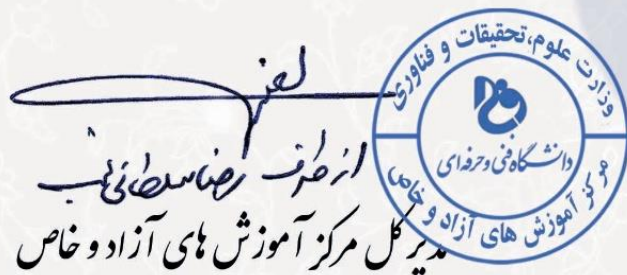 از طرف رضا سلطانی
مدیر کل مرکز آموزش های آزاد و خاص
وزارت علوم، تحقیقات و فناوری
دانشگاه فنی و حرفه‌ای
مرکز آموزش های آزاد و خاص